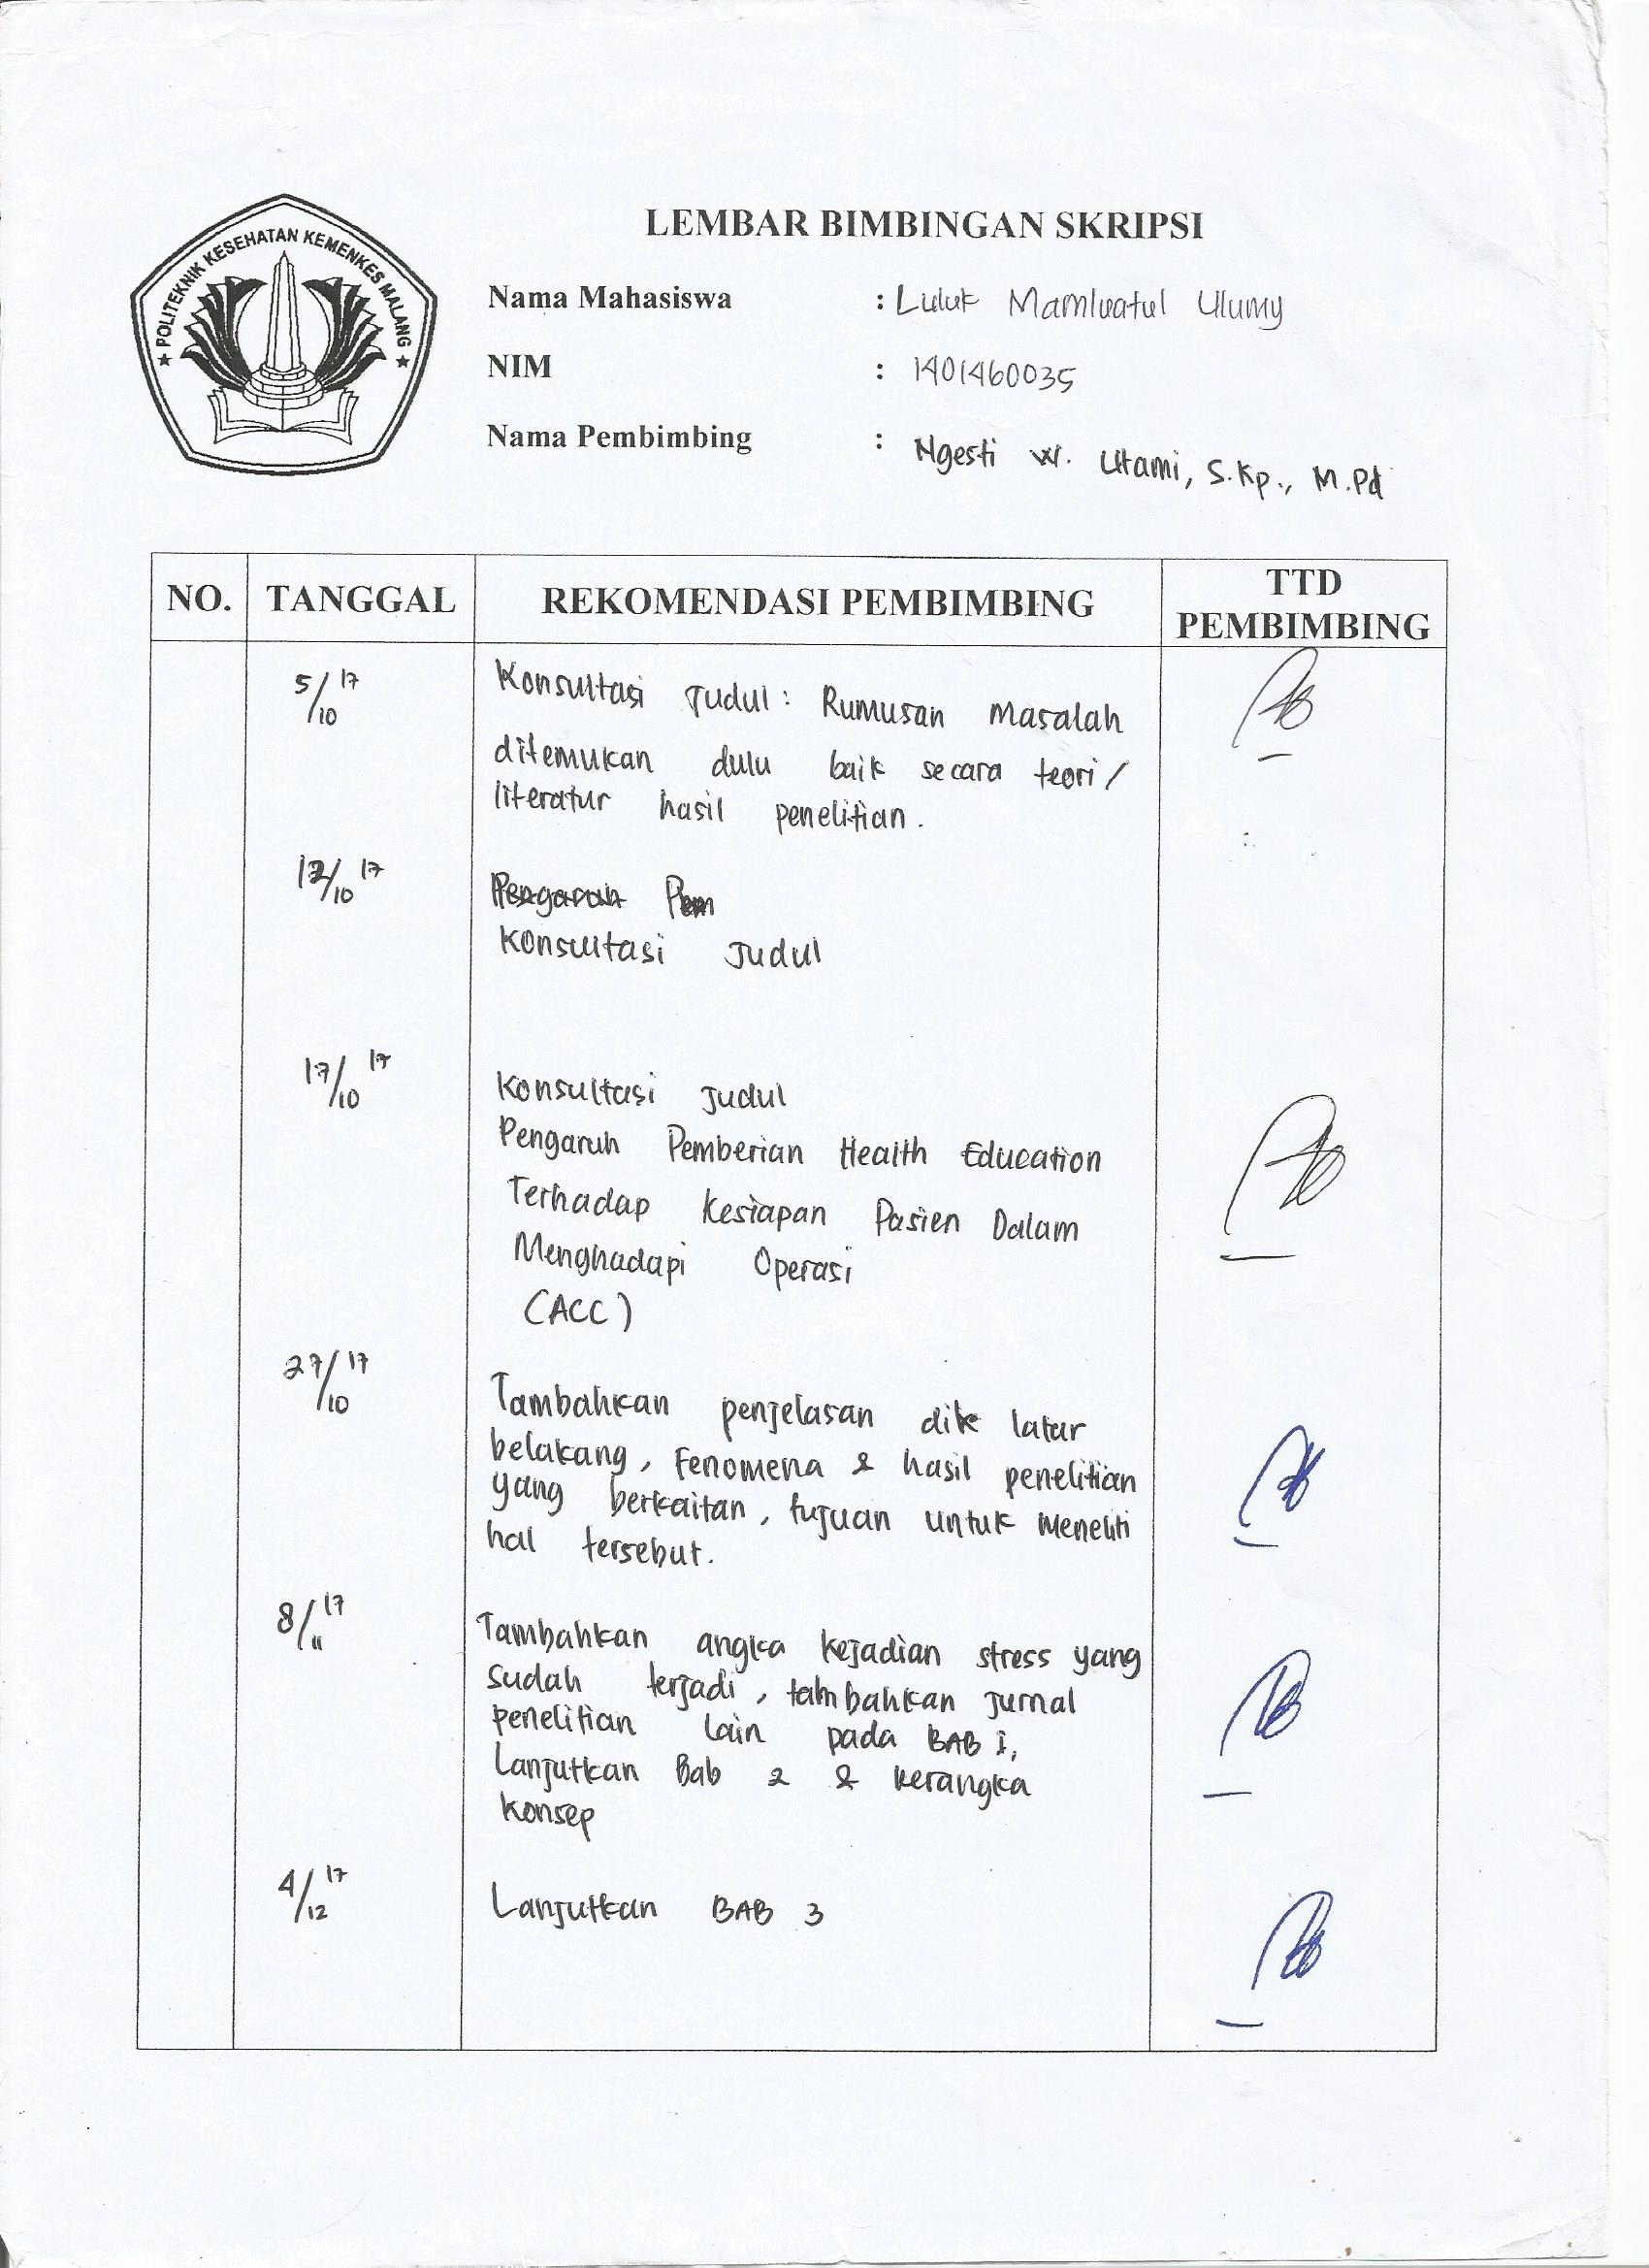 POLITEKNIK KESEHATAN KEMENKES MALANG
LEMBAR BIMBINGAN SKRIPSI
Nama Mahasiswa : Luluk Mamluatul Ulumy
NIM : 1401460035
Nama Pembimbing : Ngesti W. Utami, S.Kp., M.Pd
NO. TANGGAL REKOMENDASI PEMBIMBING TTD PEMBIMBING
5/10 17 Konsultasi Judul: Rumusan Masalah
ditemukan dulu baik secara teori/
literatur hasil penelitian.
12/10 17
Konsultasi Judul
17/10 17 Konsultasi Judul
Pengaruh Pemberian Health Education
Terhadap Kesiapan Pasien Dalam
Menghadapi Operasi
(ACC)
27/10 17 Tambahkan penjelasan dik latar
belakang, Fenomena & hasil penelitian
yang berkaitan, tujuan untuk meneliti
hal tersebut.
8/11 17 Tambahkan angka kejadian stress yang
sudah terjadi, tambahkan jurnal
penelitian lain pada BAB I,
Lanjutkan Bab 2 & kerangka
konsep
4/12 17 Lanjutkan BAB 3